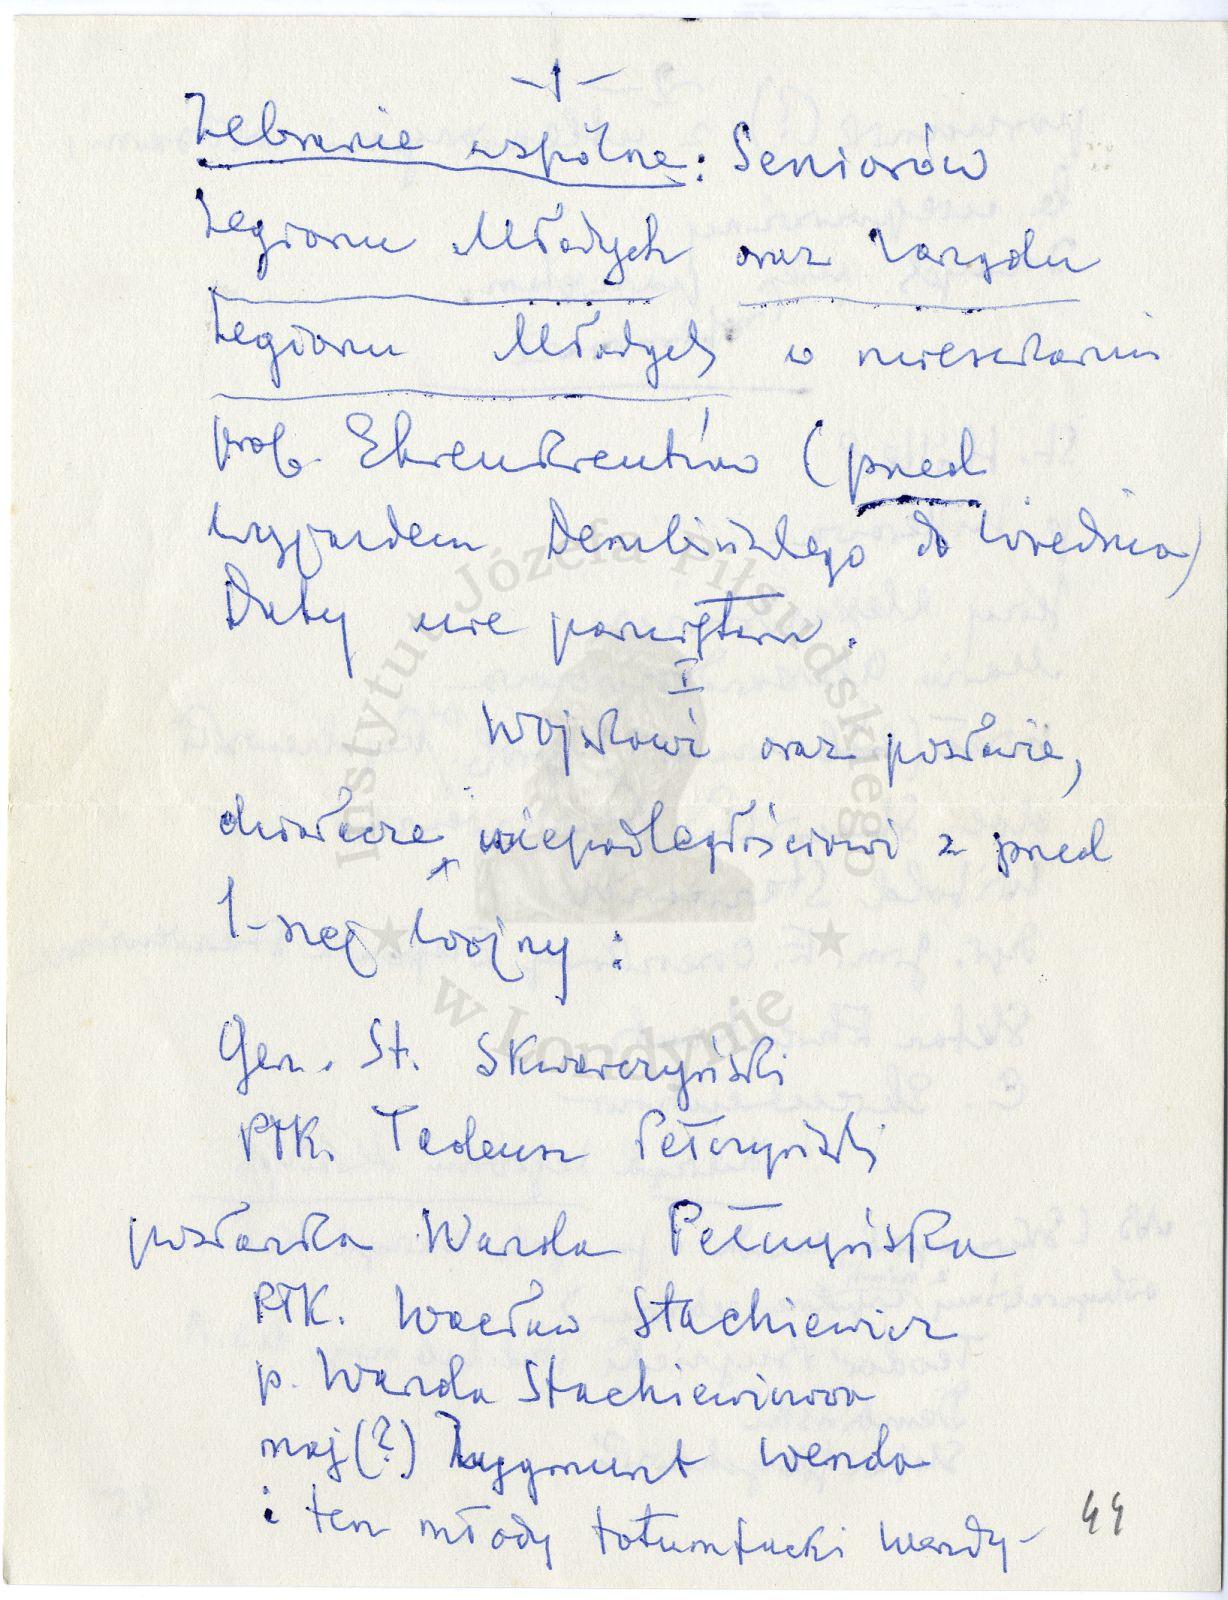 -1-
Zebranie wspólne: Seniorów
Legionu Młodych oraz Zarządu
Legionu Młodych w mieszkaniu
prof. Ehrenkreutzów (przed
wyjazdem Dembińskiego do Wiednia)
Daty nie pamiętam.
I
Wojskowi oraz posłowie,
działacze niepodległościowi z przed
1-szej wojny:
Gen. St. Skwarczyński
Płk. Tadeusz Pełczyński
posłanka Wanda Pełczyńska
Płk. Wacław Stachiewicz
p. Wanda Stachiewiczowa
maj(?) Zygmunt Wenda
i ten młody totumfacki Wendy-
44
Instytut Józefa Piłsudskiego
w Londynie